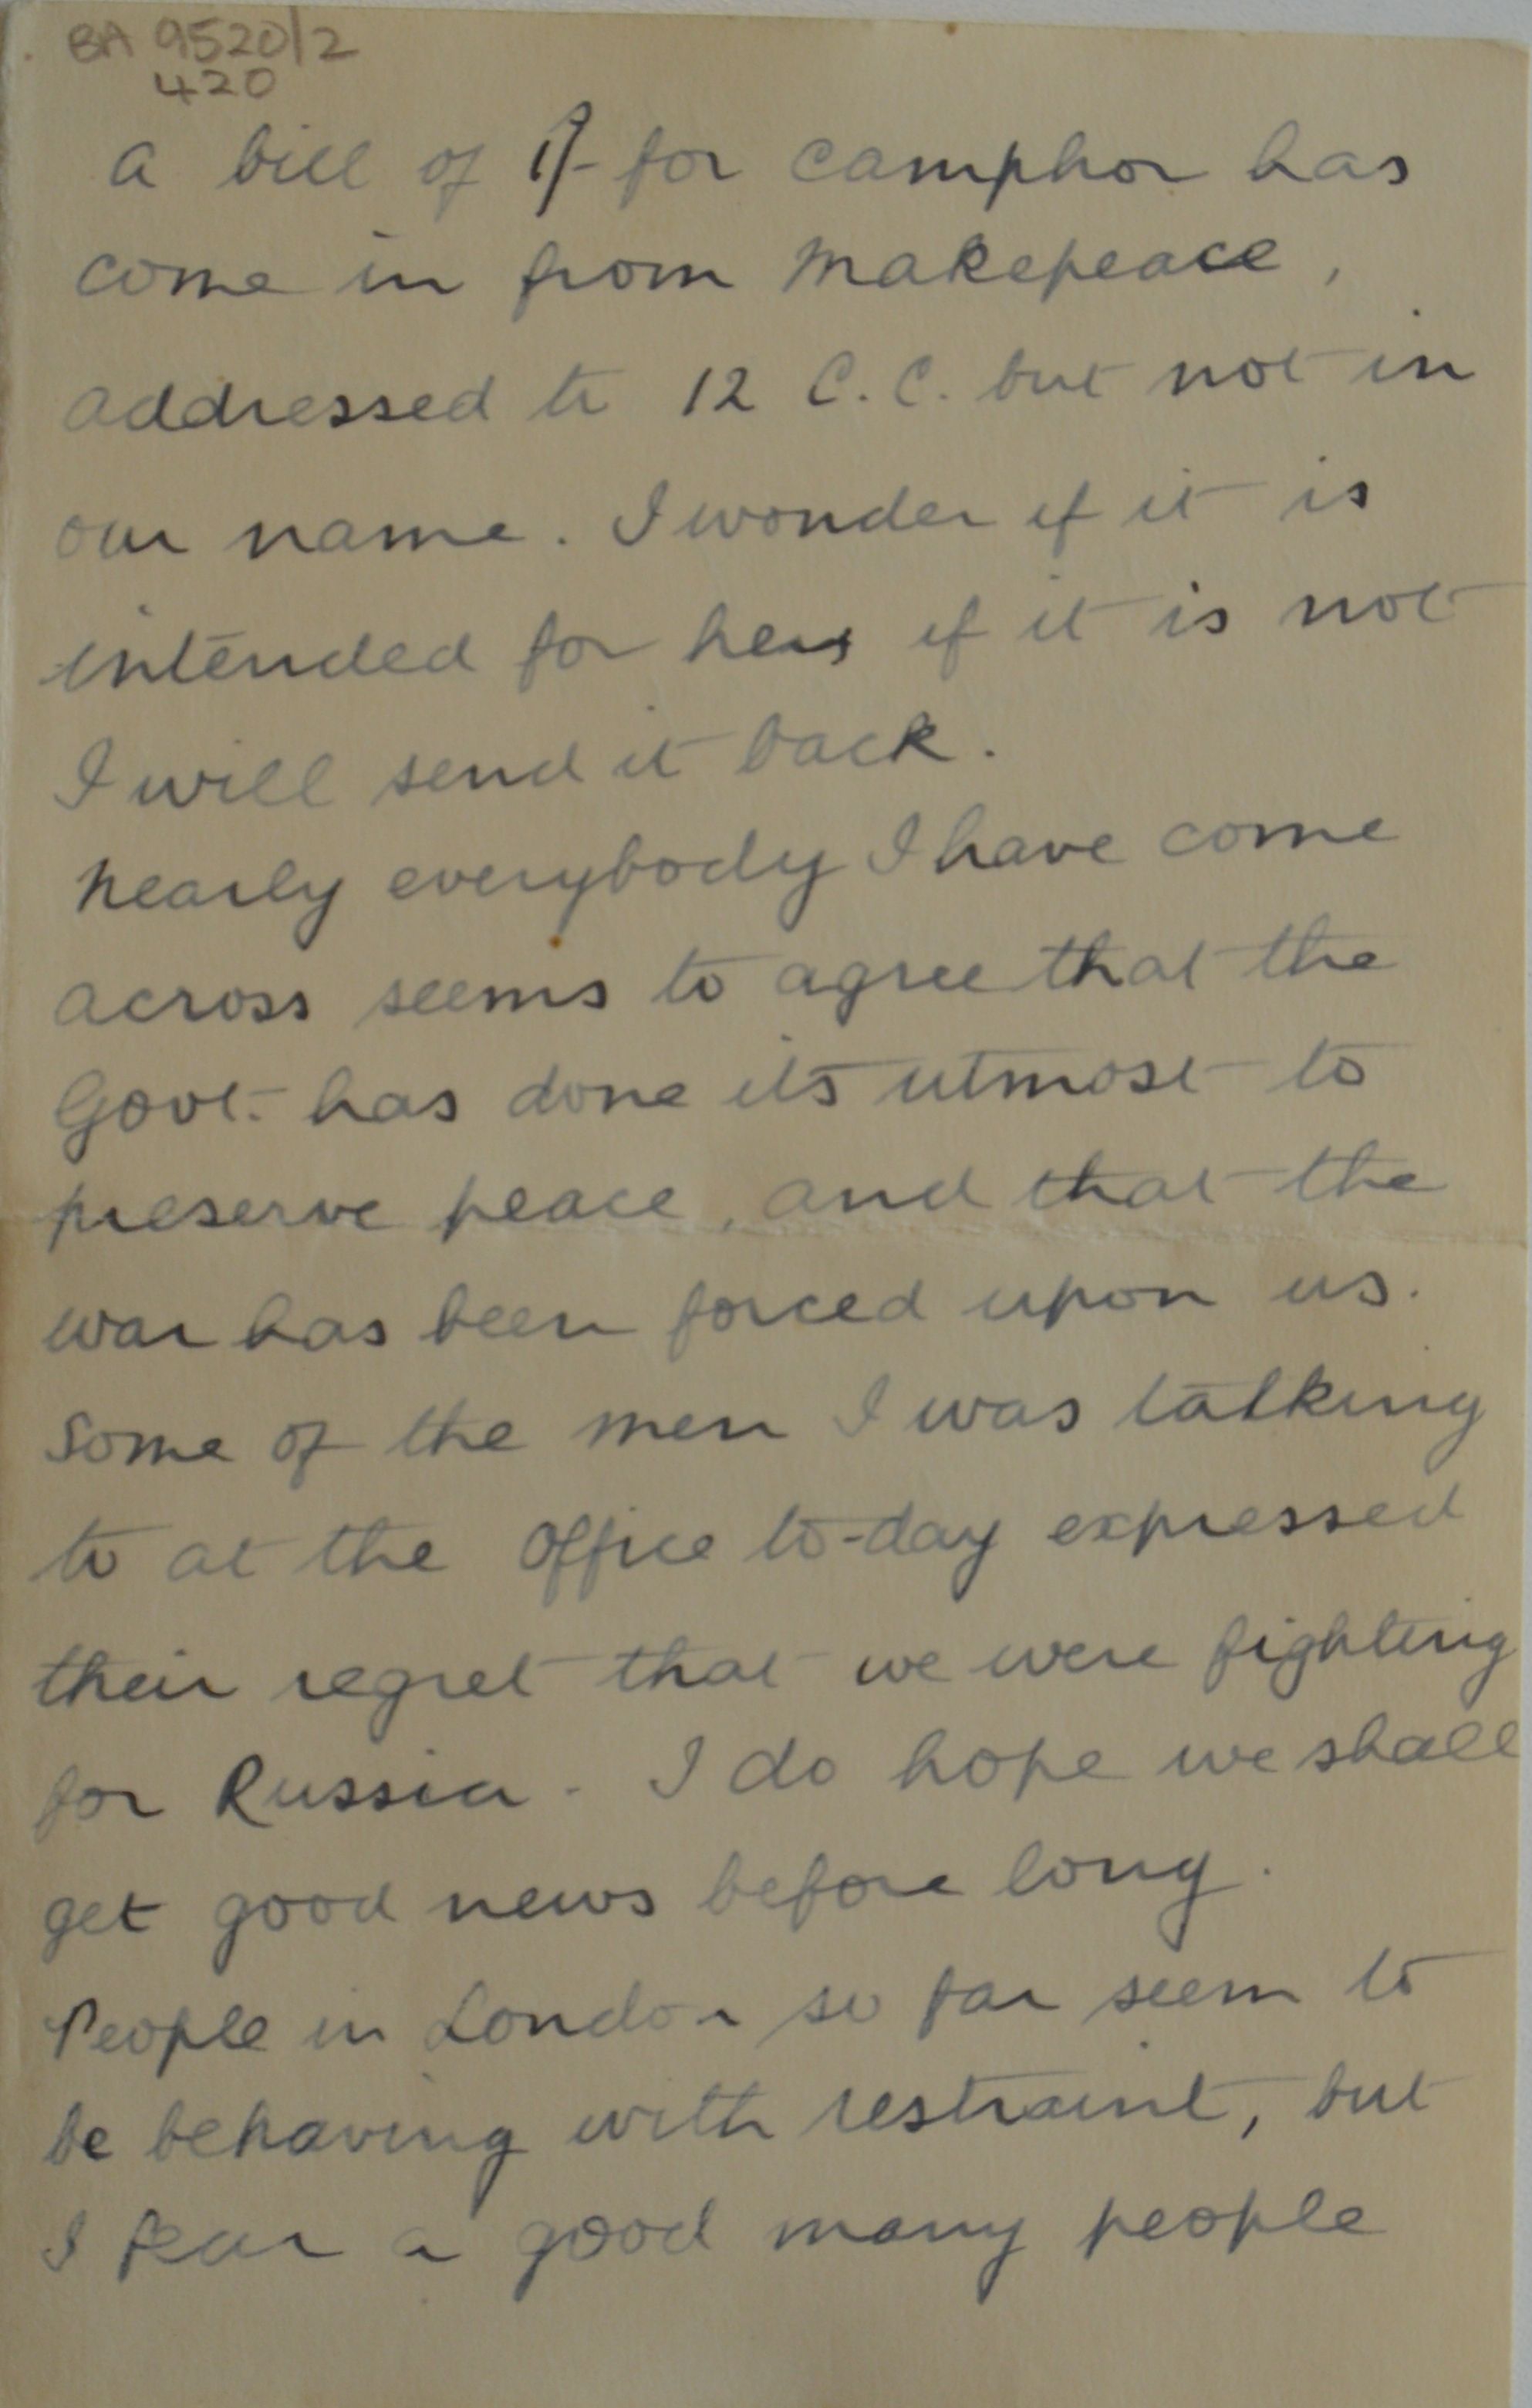 BA 9520/2
420
A bill of 1/- for camphor has
come in from Makepeace,
addressed to 12 C.C. but not in
our name. I wonder if it is
intended for hers if it is not
I will send it back.
Nearly everybody I have come
across seems to agree that the
Govt. has done its utmost to
preserve peace, and that the
war has been forced upon us.
Some of the men I was talking
to at the Office to-day expressed
their regret that we were fighting
for Russia. I do hope we shall
get good news before long.
People in London so far seem to
be behaving with restraint, but
I fear a good many people